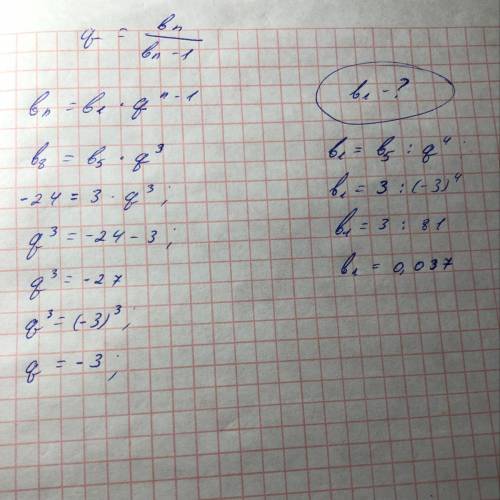 q = bₙ / bₙ-1
bₙ = b₁ · qⁿ⁻¹
b₈ = b₅ · q³
-24 = 3 · q³;
q³ = -24 - 3;
q³ = -27
q³ = (-3)³;
q = -3;
b₁ - ?
b₁ = b₅ : q⁴
b₁ = 3 : (-3)⁴
b₁ = 3 : 81
b₁ = 0,037